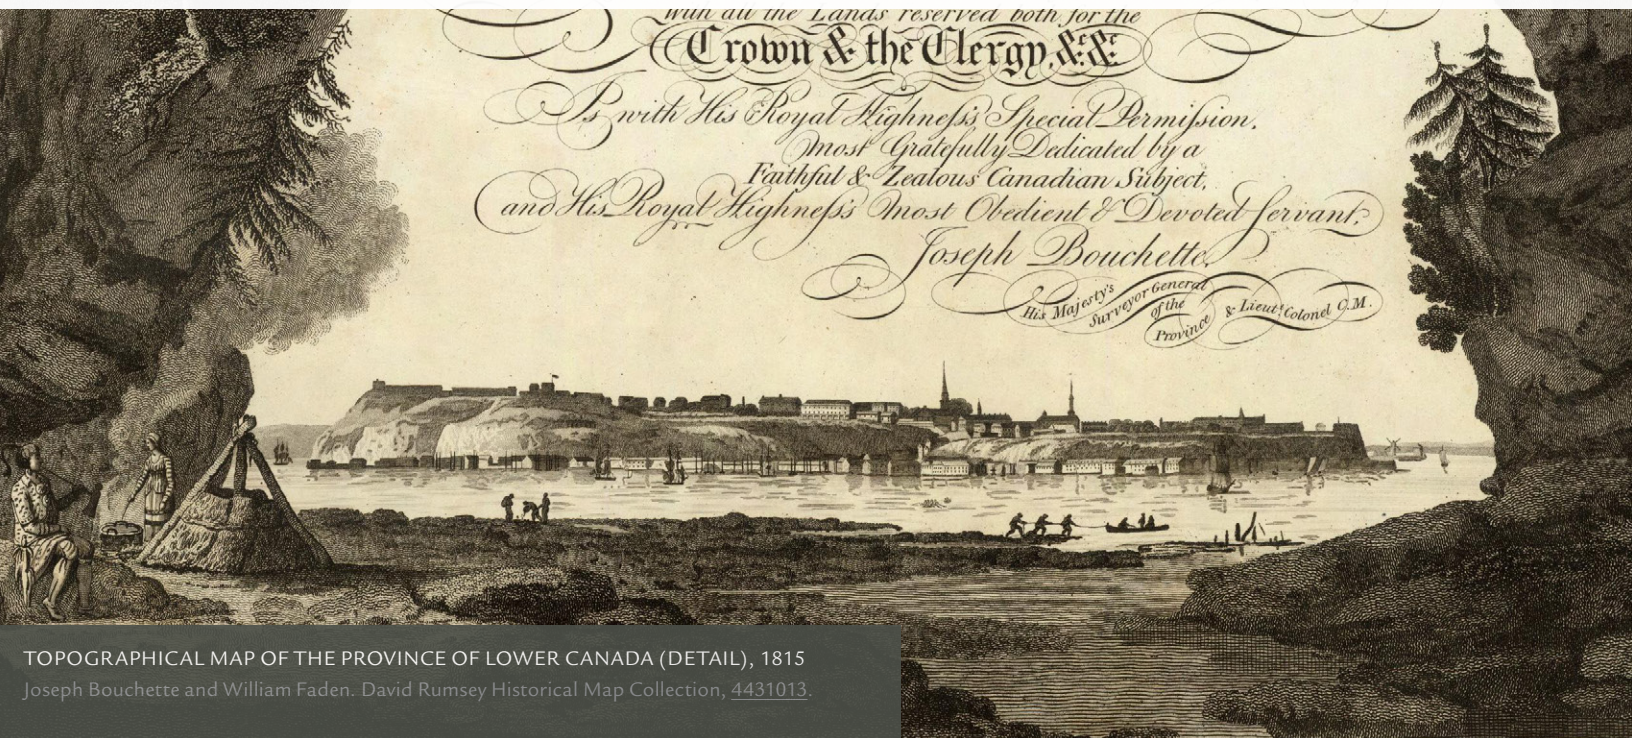 with all the Lands reserved both for the
Crown & the Clergy, &c. &c.
Is with His Royal Highneſs's Special Permiſsion,
most Gratefully Dedicated by a
Faithful & Zealous Canadian Subject,
and His Royal Highneſs's most Obedient & Devoted Servant;
Joseph Bouchette,
His Majesty's Surveyor General of the Province & Lieut. Colonel C.M.
TOPOGRAPHICAL MAP OF THE PROVINCE OF LOWER CANADA (DETAIL), 1815
Joseph Bouchette and William Faden. David Rumsey Historical Map Collection, 4431013.